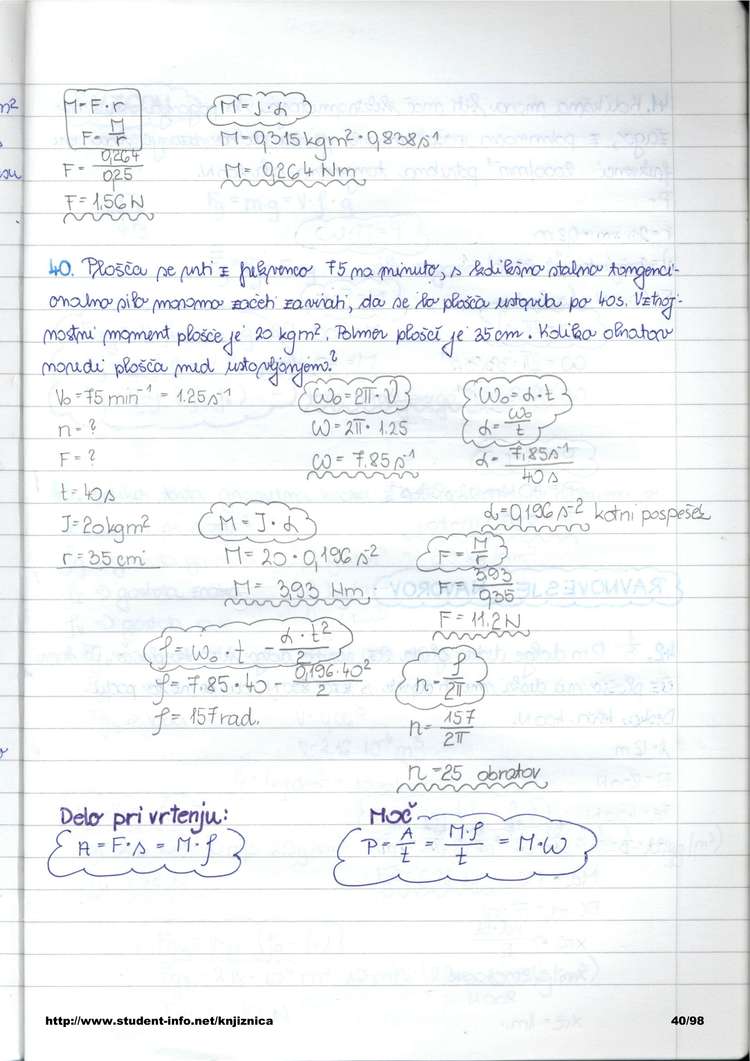 M=F·r
F=M/r
F=0,264/0,25
F=1,56N
M=J·α
M=0,315kgm²·0,838s⁻¹
M=0,264Nm
40. Plošča se vrti z frekvenco 75 na minuto, s kolikšno stalno tangenci-
onalno silo moramo začeti zavirati, da se bo plošča ustavila po 40s. Vztraj-
nostni moment plošče je 20 kgm². Polmer plošči je 35cm. Koliko obratov
naredi plošča med ustavljanjem?
ν₀=75min⁻¹=1.25s⁻¹
n=?
F=?
t=40s
J=20kgm²
r=35cm
ω₀=2π·ν
ω=2π·1.25
ω=7.85s⁻¹
ω₀=α·t
α=ω₀/t
α=7,85s⁻¹/40s
α=0,196s⁻² kotni pospešek
M=J·α
M=20·0,196s⁻²
M=3,93 Nm
F=M/r
F=3,93/0,35
F=11.2N
φ=ω₀·t-α·t²/2
φ=7.85·40-0,196·40²/2
φ=157rad.
n=φ/2π
n=157/2π
n=25 obratov
Delo pri vrtenju:
A=F·s=M·φ
Moč
P=A/t=M·φ/t=M·ω
http://www.student-info.net/knjiznica
40/98